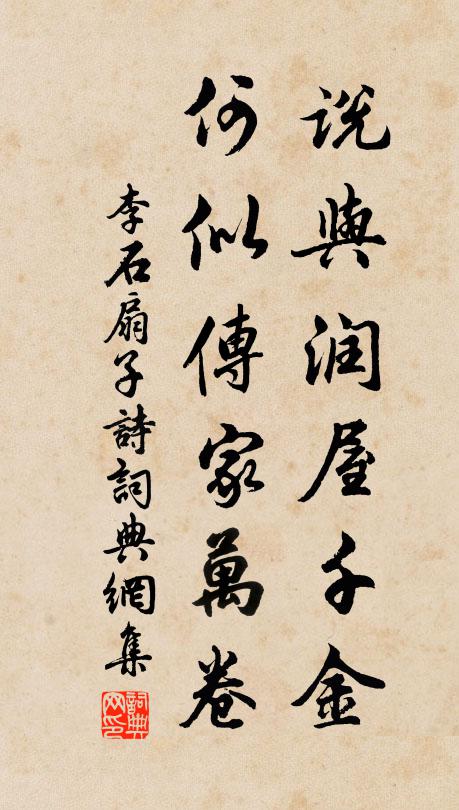 说與润屋千金
何似傳家萬卷
李石扇子詩詞典網集
詞典网印